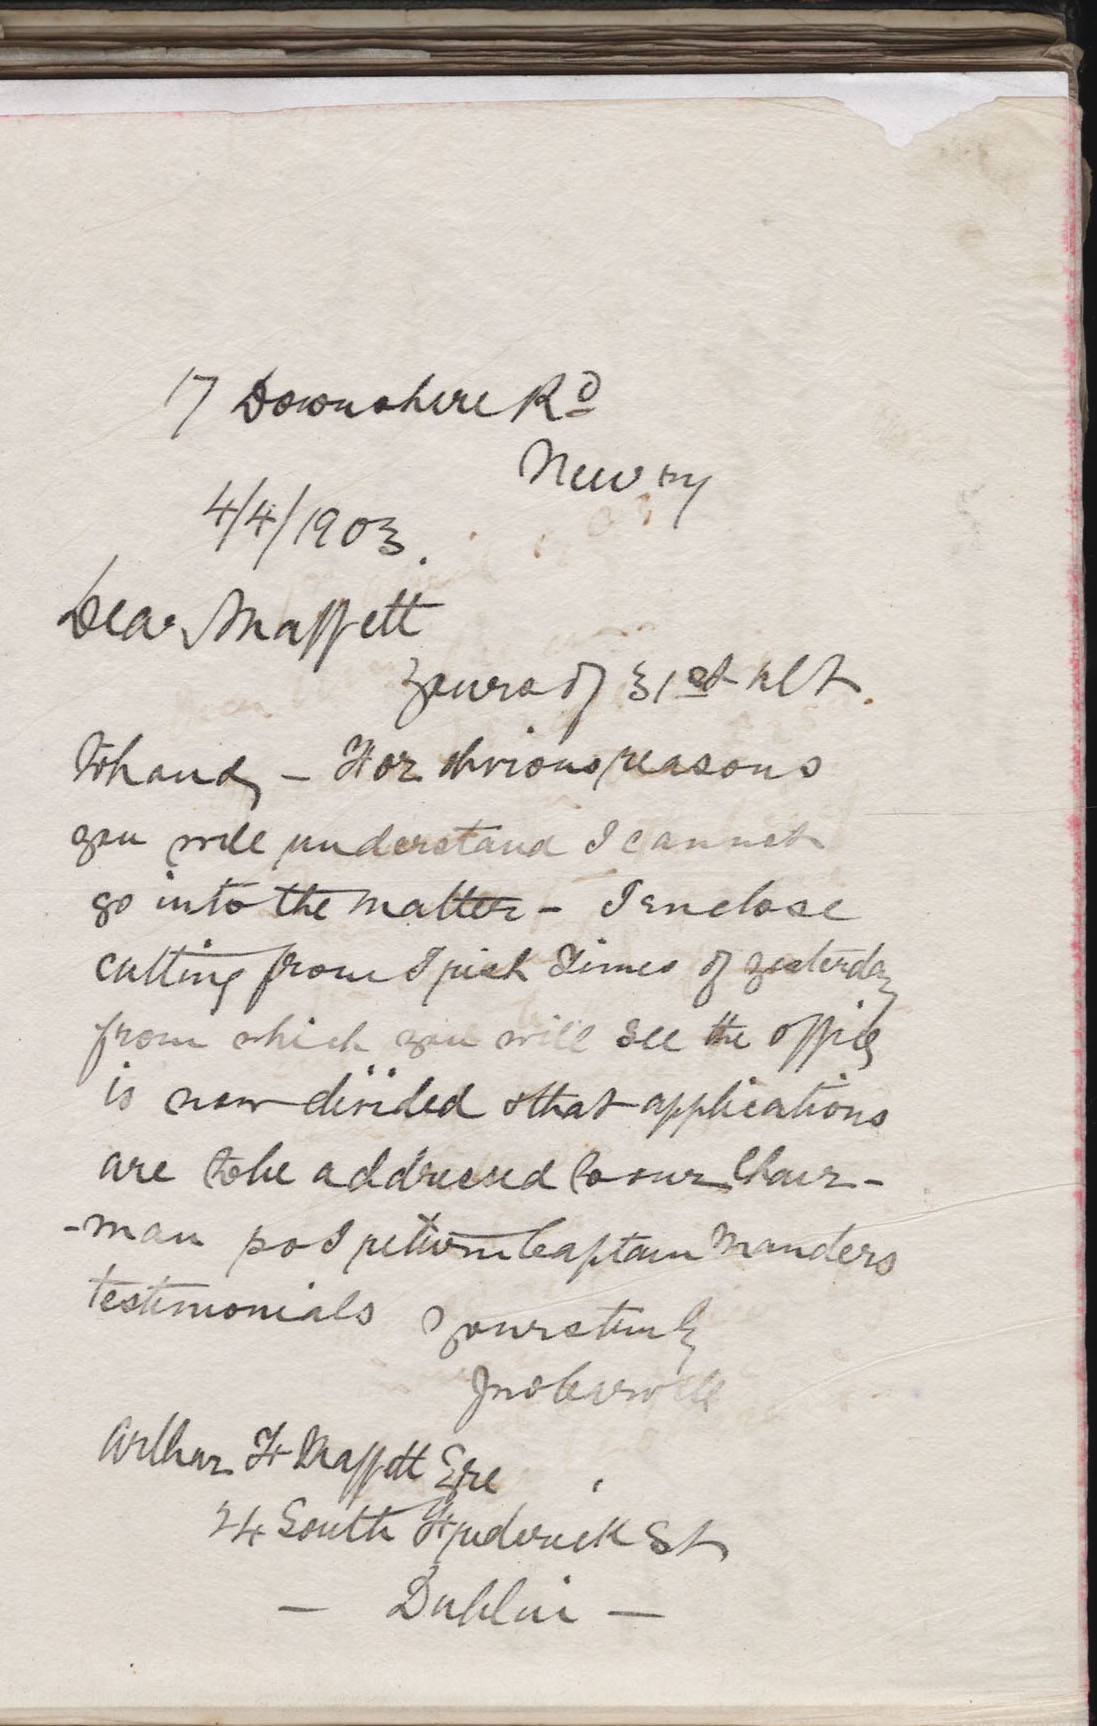 17 Downshire Rd
Newry
4/4/1903.
Dear Maffett
Yours of 31st ult.
to hand, - For obvious reasons
you will understand I cannot
go into the matter - I enclose
cutting from Irish Times of yesterday
from which you will see the office
is now divided & that applications
are to be addressed to our Chair-
-man so I return Captain Manders
testimonials
Yours truly
Arthur F Maffett Esqe
24 South Frederick St
- Dublin -